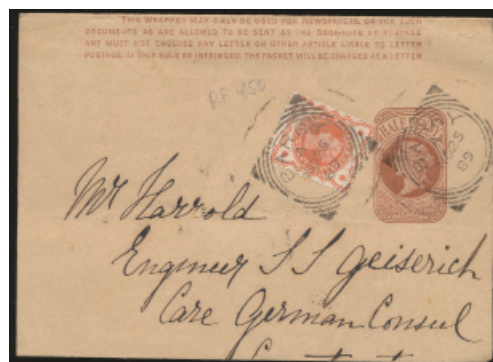 THIS WRAPPER MAY ONLY BE USED FOR NEWSPAPERS, OR FOR SUCH
DOCUMENTS AS ARE ALLOWED TO BE SENT AT THE BOOK-RATE OF POSTAGE
AND MUST NOT ENCLOSE ANY LETTER OR OTHER ARTICLE LIABLE TO LETTER
POSTAGE. IF THIS RULE BE INFRINGED THE PACKET WILL BE CHARGED AS A LETTER
RF 450
HALFPENNY
89
Mr Harrold
Engineer S S Geiserich
Care German Consul